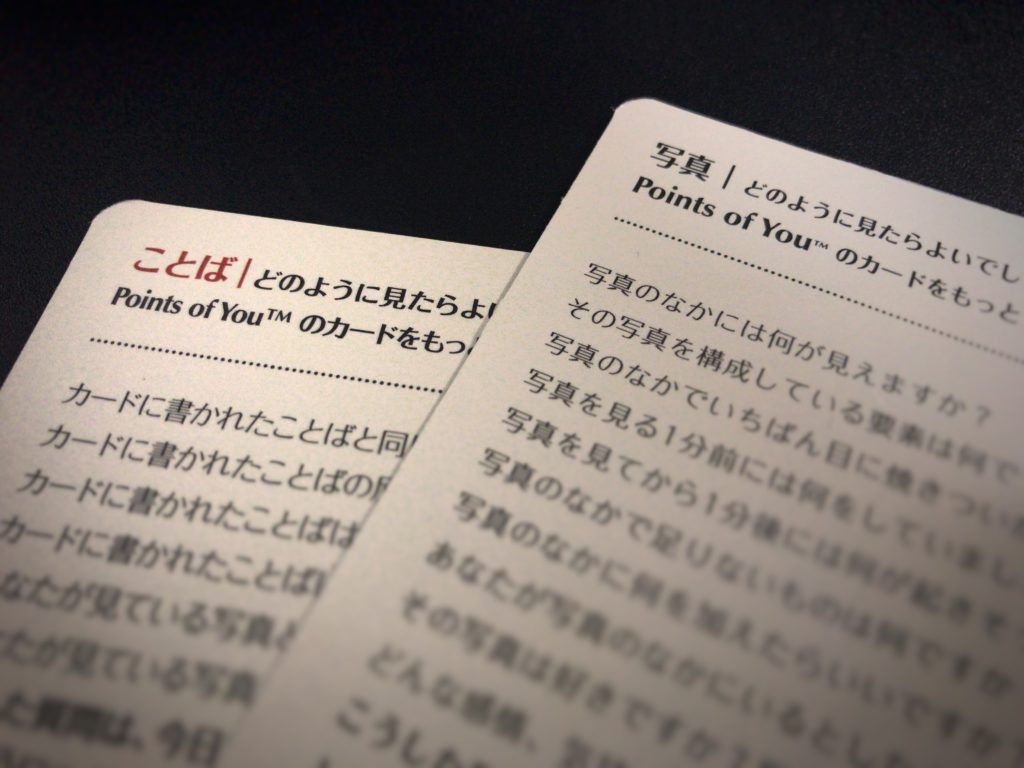 ことば|どのように見たらよい
Points of You™ のカードをもっ
カードに書かれたことばと同
カードに書かれたことばの
カードに書かれたことばは
カードに書かれたことば
なたが見ている写真と
たが見ている写真
た質問は、今日
写真|どのように見たらよいでし
Points of You™ のカードをもっと
写真のなかには何が見えますか?
その写真を構成している要素は何で
写真のなかでいちばん目に焼きつい
写真を見る1分前には何をしていまし
写真を見てから1分後には何が起きそ
写真のなかで足りないものは何ですか
写真のなかに何を加えたらいいですか
あなたが写真のなかにいるとした
その写真は好きですか?
どんな感情、気
こうした